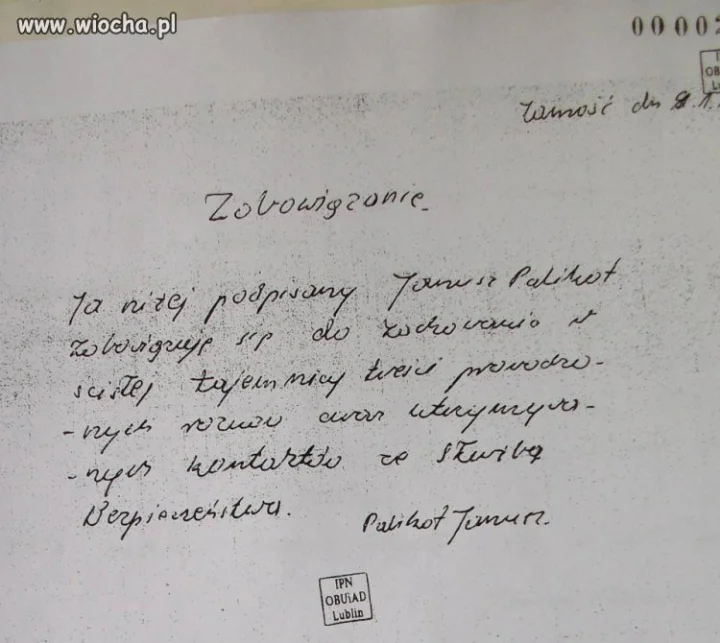 www.wiocha.pl
0000
Zamość dn 8.1.
Zobowiązanie.
Ja niżej podpisany Janusz Palikot
zobowiązuję się do zachowania w
ścisłej tajemnicy treści prowadzo-
-nych rozmów oraz utrzymywa-
-nych kontaktów ze Służbą
Bezpieczeństwa.
Palikot Janusz.
IPN
OBUiAD
Lublin